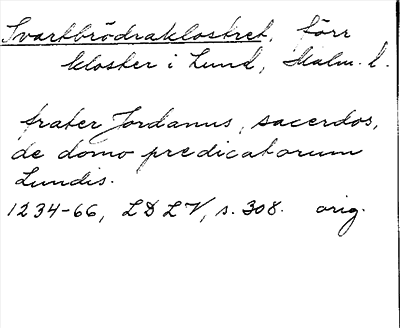 Svartbrödraklostret, förr
kloster i Lund, Malm. l.
frater Jordanus, sacerdos,
de domo predicatorum
Lundis.
1234-66, LDLV, s. 308. orig.